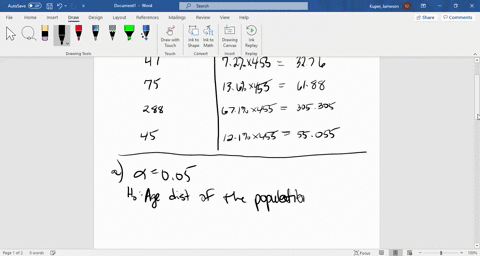 AutoSave Off Document1 - Word Search Kuper, Jameson
File Home Insert Draw Design Layout References Mailings Review View Help Share Comments
Draw with Touch
Ink to Shape
Ink to Math
Drawing Canvas
Ink Replay
Touch Drawing Tools Convert Insert Replay
47 7.2%×455 = 32.76
75 13.6%×455 = 61.88
288 67.1%×455 = 305.305
45 12.1%×455 = 55.055
a) α=0.05
H₀: Age dist of the population
Page 1 of 2 0 words Focus